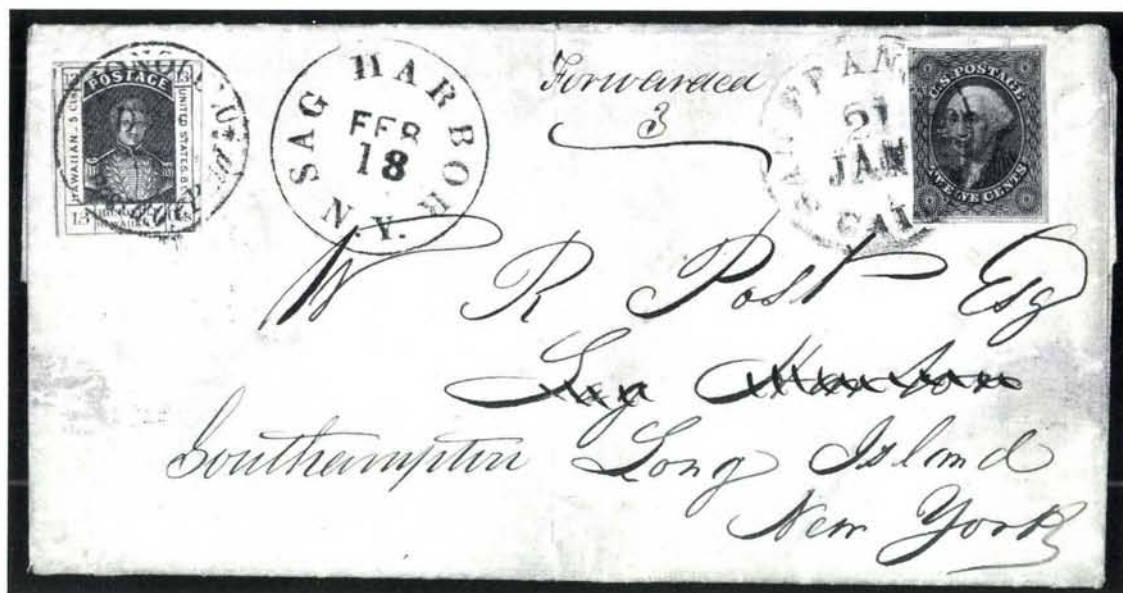 POSTAGE
HAWAIIAN. 5 Cts.
UNITED STATES. 8 C
13
SAG HARBOR
FEB
18
N.Y.
Forwarded
3
21
JAN
CAL
U.S. POSTAGE
TWELVE CENTS
W R Post Esq
Sag Harbor
Southampton Long Island
New York